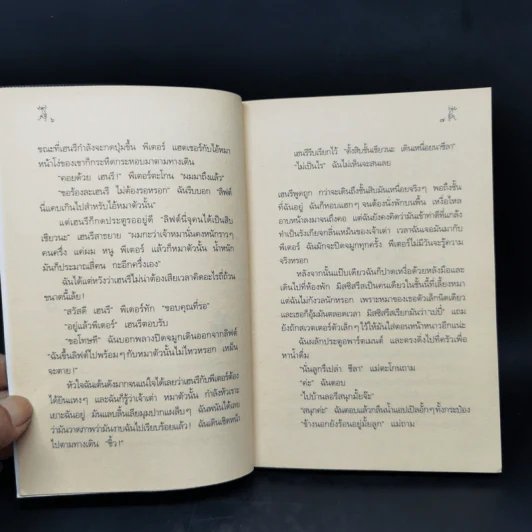 ๖
ขณะที่เฮนรีกำลังจะกดปุ่มขึ้น พีเตอร์ แฮตเชอร์กับไอ้หมา
หน้าโง่ของเขาก็กระหืดกระหอบมาตามทางเดิน
"คอยด้วย เฮนรี!" พีเตอร์ตะโกน "ผมมาถึงแล้ว"
"ขอร้องละเฮนรี ไม่ต้องรอหรอก" ฉันรีบบอก "ลิฟต์
นี่แคบเกินไปสำหรับไอ้หมาตัวนั้น"
แต่เฮนรีก็กดประตูรออยู่ดี "ลิฟต์นี่จุคนได้เป็นสิบ
เชียวนะ" เฮนรีสาธยาย "ผมกะว่าเจ้าหมานั่นคงหนักราวๆ
คนครึ่ง แต่ผม หนู พีเตอร์ แล้วก็หมาตัวนั้น น้ำหนัก
มันก็ประมาณสี่คน กะอีกครึ่งเอง"
ฉันได้แต่หวังว่าเฮนรีไม่น่าต้องเสียเวลาคิดอะไรถี่ถ้วน
ขนาดนี้เลย!
"สวัสดี เฮนรี" พีเตอร์ทัก "ขอบคุณที่รอ"
"อยู่แล้วพีเตอร์" เฮนรีตอบรับ
"ขอโทษที" ฉันบอกพลางปิดจมูกเดินออกจากลิฟต์
"ฉันขึ้นลิฟต์ไปพร้อมๆ กับหมาตัวนั้นไม่ไหวหรอก เหม็น
จะตาย!"
หัวใจฉันเต้นดังมากจนแน่ใจได้เลยว่าเฮนรีกับพีเตอร์ต้อง
ได้ยินแหงๆ และฉันก็รู้ว่าเจ้าเต่า หมาตัวนั้น กำลังหัวเราะ
เยาะฉันอยู่ มันแลบลิ้นเลียมุมปากแผล็บๆ ฉันพนันได้เลย
ว่ามันวาดภาพว่ามันงาบฉันไปเรียบร้อยแล้ว! ฉันเดินเชิดหน้า
ไปตามทางเดิน "ชิ้ว!"
๗
เฮนรีรีบเรียกไว้ "ตั้งสิบชั้นเชียวนะ เดินเหนื่อยนาชีลา"
"ไม่เป็นไร" ฉันไม่เห็นจะสนเลย
เฮนรีพูดถูก กว่าจะเดินถึงชั้นสิบมันเหนื่อยจริงๆ พอถึงชั้น
ที่ฉันอยู่ ฉันก็หอบแฮก จนต้องนั่งพักบนพื้น เหงื่อไหล
อาบหน้าลงมาจนถึงคอ แต่ฉันยังคงคิดว่ามันเข้าท่าดีที่แกล้ง
ทำเป็นรังเกียจกลิ่นเหม็นของเจ้าเต่า เวลาฉันเจอมันมากับ
พีเตอร์ ฉันมักจะปิดจมูกทุกครั้ง พีเตอร์ไม่มีวันจะรู้ความ
จริงหรอก
หลังจากนั้นเป็นเดียวฉันก็ปาดเหงื่อด้วยหลังมือและ
เดินไปที่ห้องพัก มิสซิสรีสเป็นคนเดียวในชั้นนี้ที่เลี้ยงหมา
แต่ฉันไม่กังวลนักหรอก เพราะหมาของเธอตัวเล็กนิดเดียว
และเธอก็อุ้มมันตลอดเวลา มิสซิสรีสเรียกมันว่า "เบบี้" แถม
ยังถักสเวตเตอร์ตัวเล็กๆ ไว้ให้มันใส่ตอนหน้าหนาวอีกแน่ะ
ฉันผลักประตูอพาร์ตเมนต์ และตรงดิ่งไปที่ครัวเพื่อ
หาน้ำดื่ม
"นั่นลูกรึเปล่า ชีลา" แม่ตะโกนถาม
"ค่ะ" ฉันตอบ
"ไปบ้านลอรีสนุกมั้ยจ๊ะ"
"สนุกค่ะ" ฉันตอบแล้วกลืนน้ำแอปเปิลอั้กๆ ทั้งกระป๋อง
"ข้างนอกยังร้อนอยู่มั้ยลูก" แม่ถาม